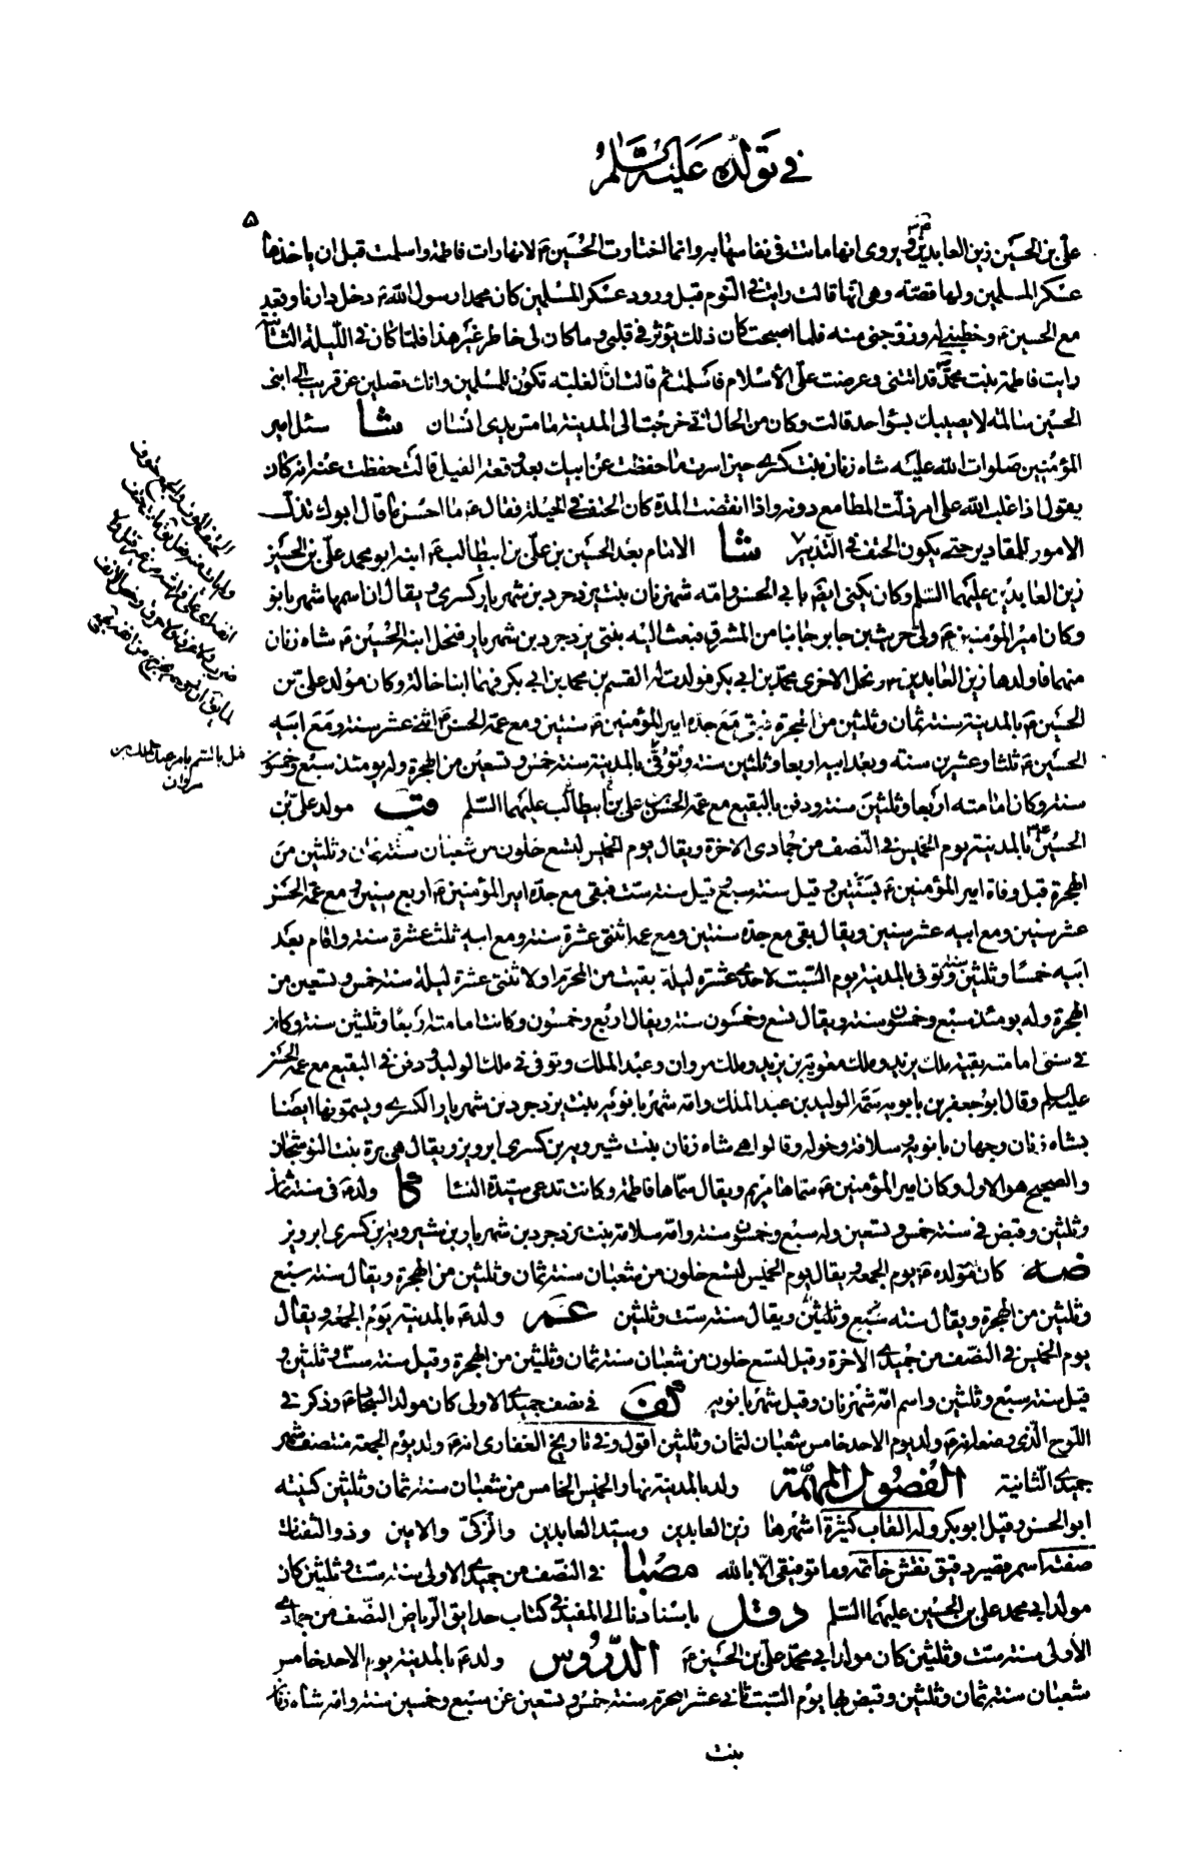 في تولده عليه السلام
٥
علي بن الحسين زين العابدين ويروى انها ماتت في نفاسها به وانما اختارت الحسين ع لانها رات فاطمة واسلمت قبل ان ياخذها
عسكر المسلمين ولها قصة وهي انها قالت رايت في النوم قبل ورود عسكر المسلمين كان محمدا رسول الله ص دخل دارنا وقعد
مع الحسين ع وخطبني له وزوجني منه فلما اصبحت كان ذلك يؤثر في قلبي وما كان لي خاطر غير هذا فلما كان في الليلة الثانية
رايت فاطمة بنت محمد ص قد اتتني وعرضت علي الاسلام فاسلمت ثم قالت ان الغلبة تكون للمسلمين وانك تصلين عن قريب الى ابني
الحسين سالمة لا يصيبك بسوء احد قالت وكان من الحال اني خرجت الى المدينة ما مس يدي انسان شا سئل امير
المؤمنين صلوات الله عليه شاه زنان بنت كسرى حين اسرت ما حفظت عن ابيك بعد وقعة الفيل قالت حفظت عنه انه كان
يقول اذا غلب الله على امر ذلت المطامع دونه واذا انقضت المدة كان الحتف في الحيلة فقال ع ما احسن ما قال ابوك تذل
الامور للمقادير حتى يكون الحتف في التدبير شا الامام بعد الحسين بن علي بن ابيطالب ع ابنه ابو محمد علي بن الحسين
زين العابدين عليهما السلم وكان يكنى ايضا بابي الحسن وامه شهزنان بنت يزدجرد بن شهريار كسرى ويقال ان اسمها شهربانو
وكان امير المؤمنين ع ولى حريث بن جابر جانبا من المشرق فبعث اليه بنتي يزدجرد بن شهريار فنحل ابنه الحسين ع شاه زنان
منهما فاولدها زين العابدين ع ونحل الاخرى محمد بن ابي بكر فولدت له القسم بن محمد بن ابي بكر فهما ابنا خالة وكان مولد علي بن
الحسين ع بالمدينة سنة ثمان وثلثين من الهجرة فبقي مع جده امير المؤمنين ع سنتين ومع عمه الحسن ع اثني عشر سنة ومع ابيه
الحسين ع ثلثا وعشرين سنة وبعد ابيه اربعا وثلثين سنة وتوفي بالمدينة سنة خمس وتسعين من الهجرة وله يومئذ سبع وخمسون
سنة وكان امامته اربعا وثلثين سنة ودفن بالبقيع مع عمه الحسن بن علي بن ابيطالب عليهما السلم قب مولد علي بن
الحسين ع بالمدينة يوم الخميس في النصف من جمادى الاخرة ويقال يوم الخميس لتسع خلون من شعبان سنة ثمان وثلثين من
الهجرة قبل وفاة امير المؤمنين ع بسنتين وقيل سنة سبع وقيل سنة ست فبقي مع جده امير المؤمنين ع اربع سنين ومع عمه الحسن
عشر سنين ومع ابيه عشر سنين ويقال بقي مع جده سنتين ومع عمه اثنتي عشرة سنة ومع ابيه ثلث عشرة سنة واقام بعد
ابيه خمسا وثلثين سنة وتوفي بالمدينة يوم السبت لاحدى عشرة ليلة بقيت من المحرم او لاثنتي عشرة ليلة سنة خمس وتسعين من
الهجرة وله يومئذ سبع وخمسون سنة ويقال تسع وخمسون سنة ويقال اربع وخمسون وكانت امامته اربعا وثلثين سنة وكان
في سني امامته بقية ملك يزيد وملك معوية بن يزيد وملك مروان وعبد الملك وتوفي في ملك الوليد ودفن في البقيع مع عمه الحسن
عليه السلم وقال ابو جعفر بن بابويه سمه الوليد بن عبد الملك وامه شهربانويه بنت يزدجرد بن شهريار الكسرى ويسمونها ايضا
بشاه زنان وجهان بانويه وسلافة وخولة وقالوا هي شاه زنان بنت شيرويه بن كسرى ابرويز ويقال هي برة بنت النوشجان
والصحيح هو الاول وكان امير المؤمنين ع سماها مريم ويقال سماها فاطمة وكانت تدعى سيدة النساء كا ولد ع في سنة ثمان
وثلثين وقبض في سنة خمس وتسعين وله سبع وخمسون سنة وامه سلامة بنت يزدجرد بن شهريار بن شيرويه بن كسرى ابرويز
ضه كان مولده ع يوم الجمعة ويقال يوم الخميس لتسع خلون من شعبان سنة ثمان وثلثين من الهجرة ويقال سنة سبع
وثلثين من الهجرة ويقال سنة سبع وثلثين ويقال سنة ست وثلثين عم ولد ع بالمدينة يوم الجمعة ويقال
يوم الخميس في النصف من جمدى الاخرة وقيل لتسع خلون من شعبان سنة ثمان وثلثين من الهجرة وقيل سنة ست وثلثين و
قيل سنة سبع وثلثين واسم امه شهزنان وقيل شهربانويه كف في نصف جمدى الاولى كان مولد السجاد ع وذكر في
اللوح الذي وضعه انه ع ولد يوم الاحد خامس شعبان لثمان وثلثين اقول وفي تاريخ الغفاري انه ع ولد يوم الجمعة منتصف شهر
جمدى الثانية الفصول المهمة ولد بالمدينة نهار الخميس الخامس من شعبان سنة ثمان وثلثين كنيته
ابو الحسن وقيل ابو بكر وله القاب كثيرة اشهرها زين العابدين وسيد العابدين والزكي والامين وذو الثفنات
صفته اسمر قصير دقيق نقش خاتمه وما توفيقي الا بالله مصبا في النصف من جمدى الاولى سنة ست وثلثين كان
مولد ابي محمد علي بن الحسين عليهما السلم د قل باسنادنا الى المفيد في كتاب حدايق الرياض النصف من جمادى
الاولى سنة ست وثلثين كان مولد ابي محمد علي بن الحسين ع الدروس ولد ع بالمدينة يوم الاحد خامس
شعبان سنة ثمان وثلثين وقبض بها يوم السبت ثاني عشر المحرم سنة خمس وتسعين عن سبع وخمسين سنة وامه شاه زنان
بنت